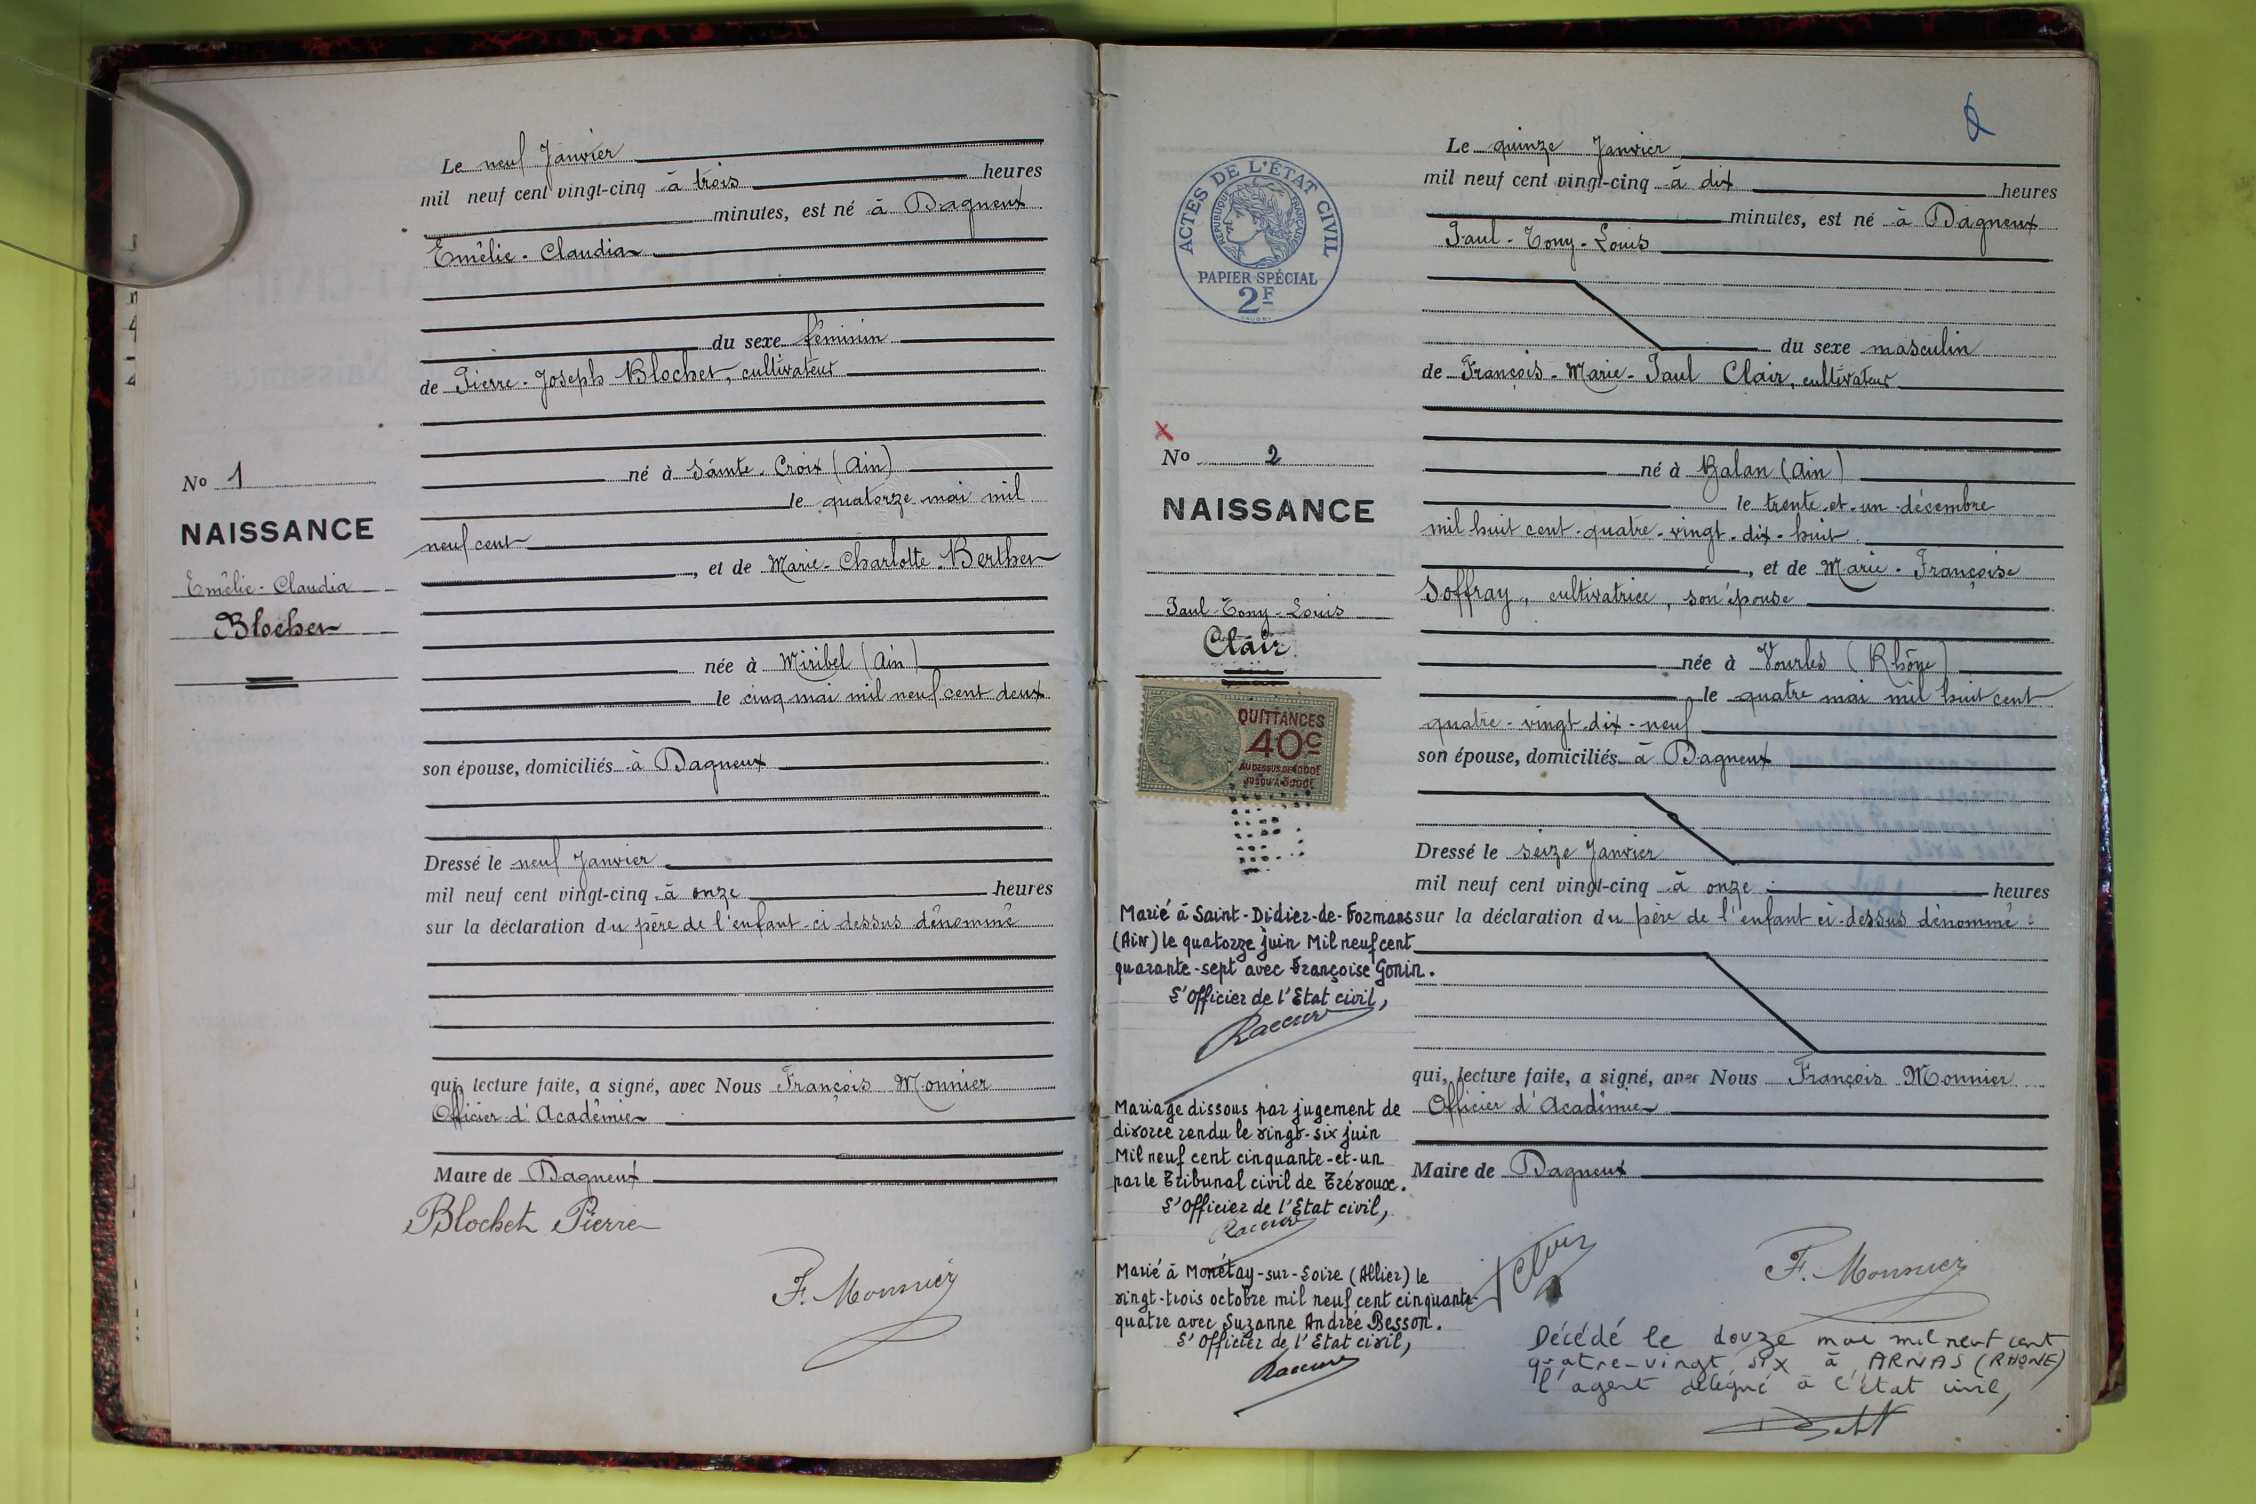 Le neuf Janvier
mil neuf cent vingt-cinq à trois heures
minutes, est né à Dagneux
Emélie-Claudia
du sexe féminin
de Pierre-Joseph Blochet, cultivateur
né à Sainte-Croix (Ain)
le quatorze mai mil
neuf cent
, et de Marie-Charlotte Berthet
née à Miribel (Ain)
le cinq mai mil neuf cent deux
son épouse, domiciliés à Dagneux
Dressé le neuf Janvier
mil neuf cent vingt-cinq à onze heures
sur la déclaration du père de l'enfant ci-dessus dénommé
qui, lecture faite, a signé, avec Nous François Monnier
Officier d'Académie
Maire de Dagneux
Blochet Pierre
F. Monnier
No 1
NAISSANCE
Emélie-Claudia
Blochet
ACTES DE L'ÉTAT CIVIL
REPUBLIQUE FRANÇAISE
PAPIER SPÉCIAL
2F
No 2
NAISSANCE
Paul-Tony-Louis
Clair
QUITTANCES
40c
AU DESSUS DE 1000F
JUSQU'A 3000F
Marié à Saint-Didier-de-Formans
(Ain) le quatorze juin Mil neuf cent
quarante-sept avec Françoise Gonin.
L'Officier de l'Etat civil,
Mariage dissous par jugement de
divorce rendu le vingt-six juin
Mil neuf cent cinquante-et-un
par le Tribunal civil de Trévoux.
L'Officier de l'Etat civil,
Marié à Monétay-sur-Loire (Allier) le
vingt-trois octobre mil neuf cent cinquante-
quatre avec Suzanne Andrée Besson.
L'Officier de l'Etat civil,
Le quinze Janvier
mil neuf cent vingt-cinq à dix heures
minutes, est né à Dagneux
Paul-Tony-Louis
du sexe masculin
de François-Marie-Paul Clair, cultivateur
né à Balan (Ain)
le trente-et-un-décembre
mil huit cent-quatre-vingt-dix-huit
, et de Marie-Françoise
Soffray, cultivatrice, son épouse
née à Vourles (Rhône)
le quatre mai mil huit cent
quatre-vingt-dix-neuf
son épouse, domiciliés à Dagneux
Dressé le seize Janvier
mil neuf cent vingt-cinq à onze heures
sur la déclaration du père de l'enfant ci-dessus dénommé
qui, lecture faite, a signé, avec Nous François Monnier
Officier d'Académie
Maire de Dagneux
F. Monnier
Décédé le douze mai mil neuf cent
quatre-vingt six à ARNAS (RHONE)
l'agent délégué à l'état civil,